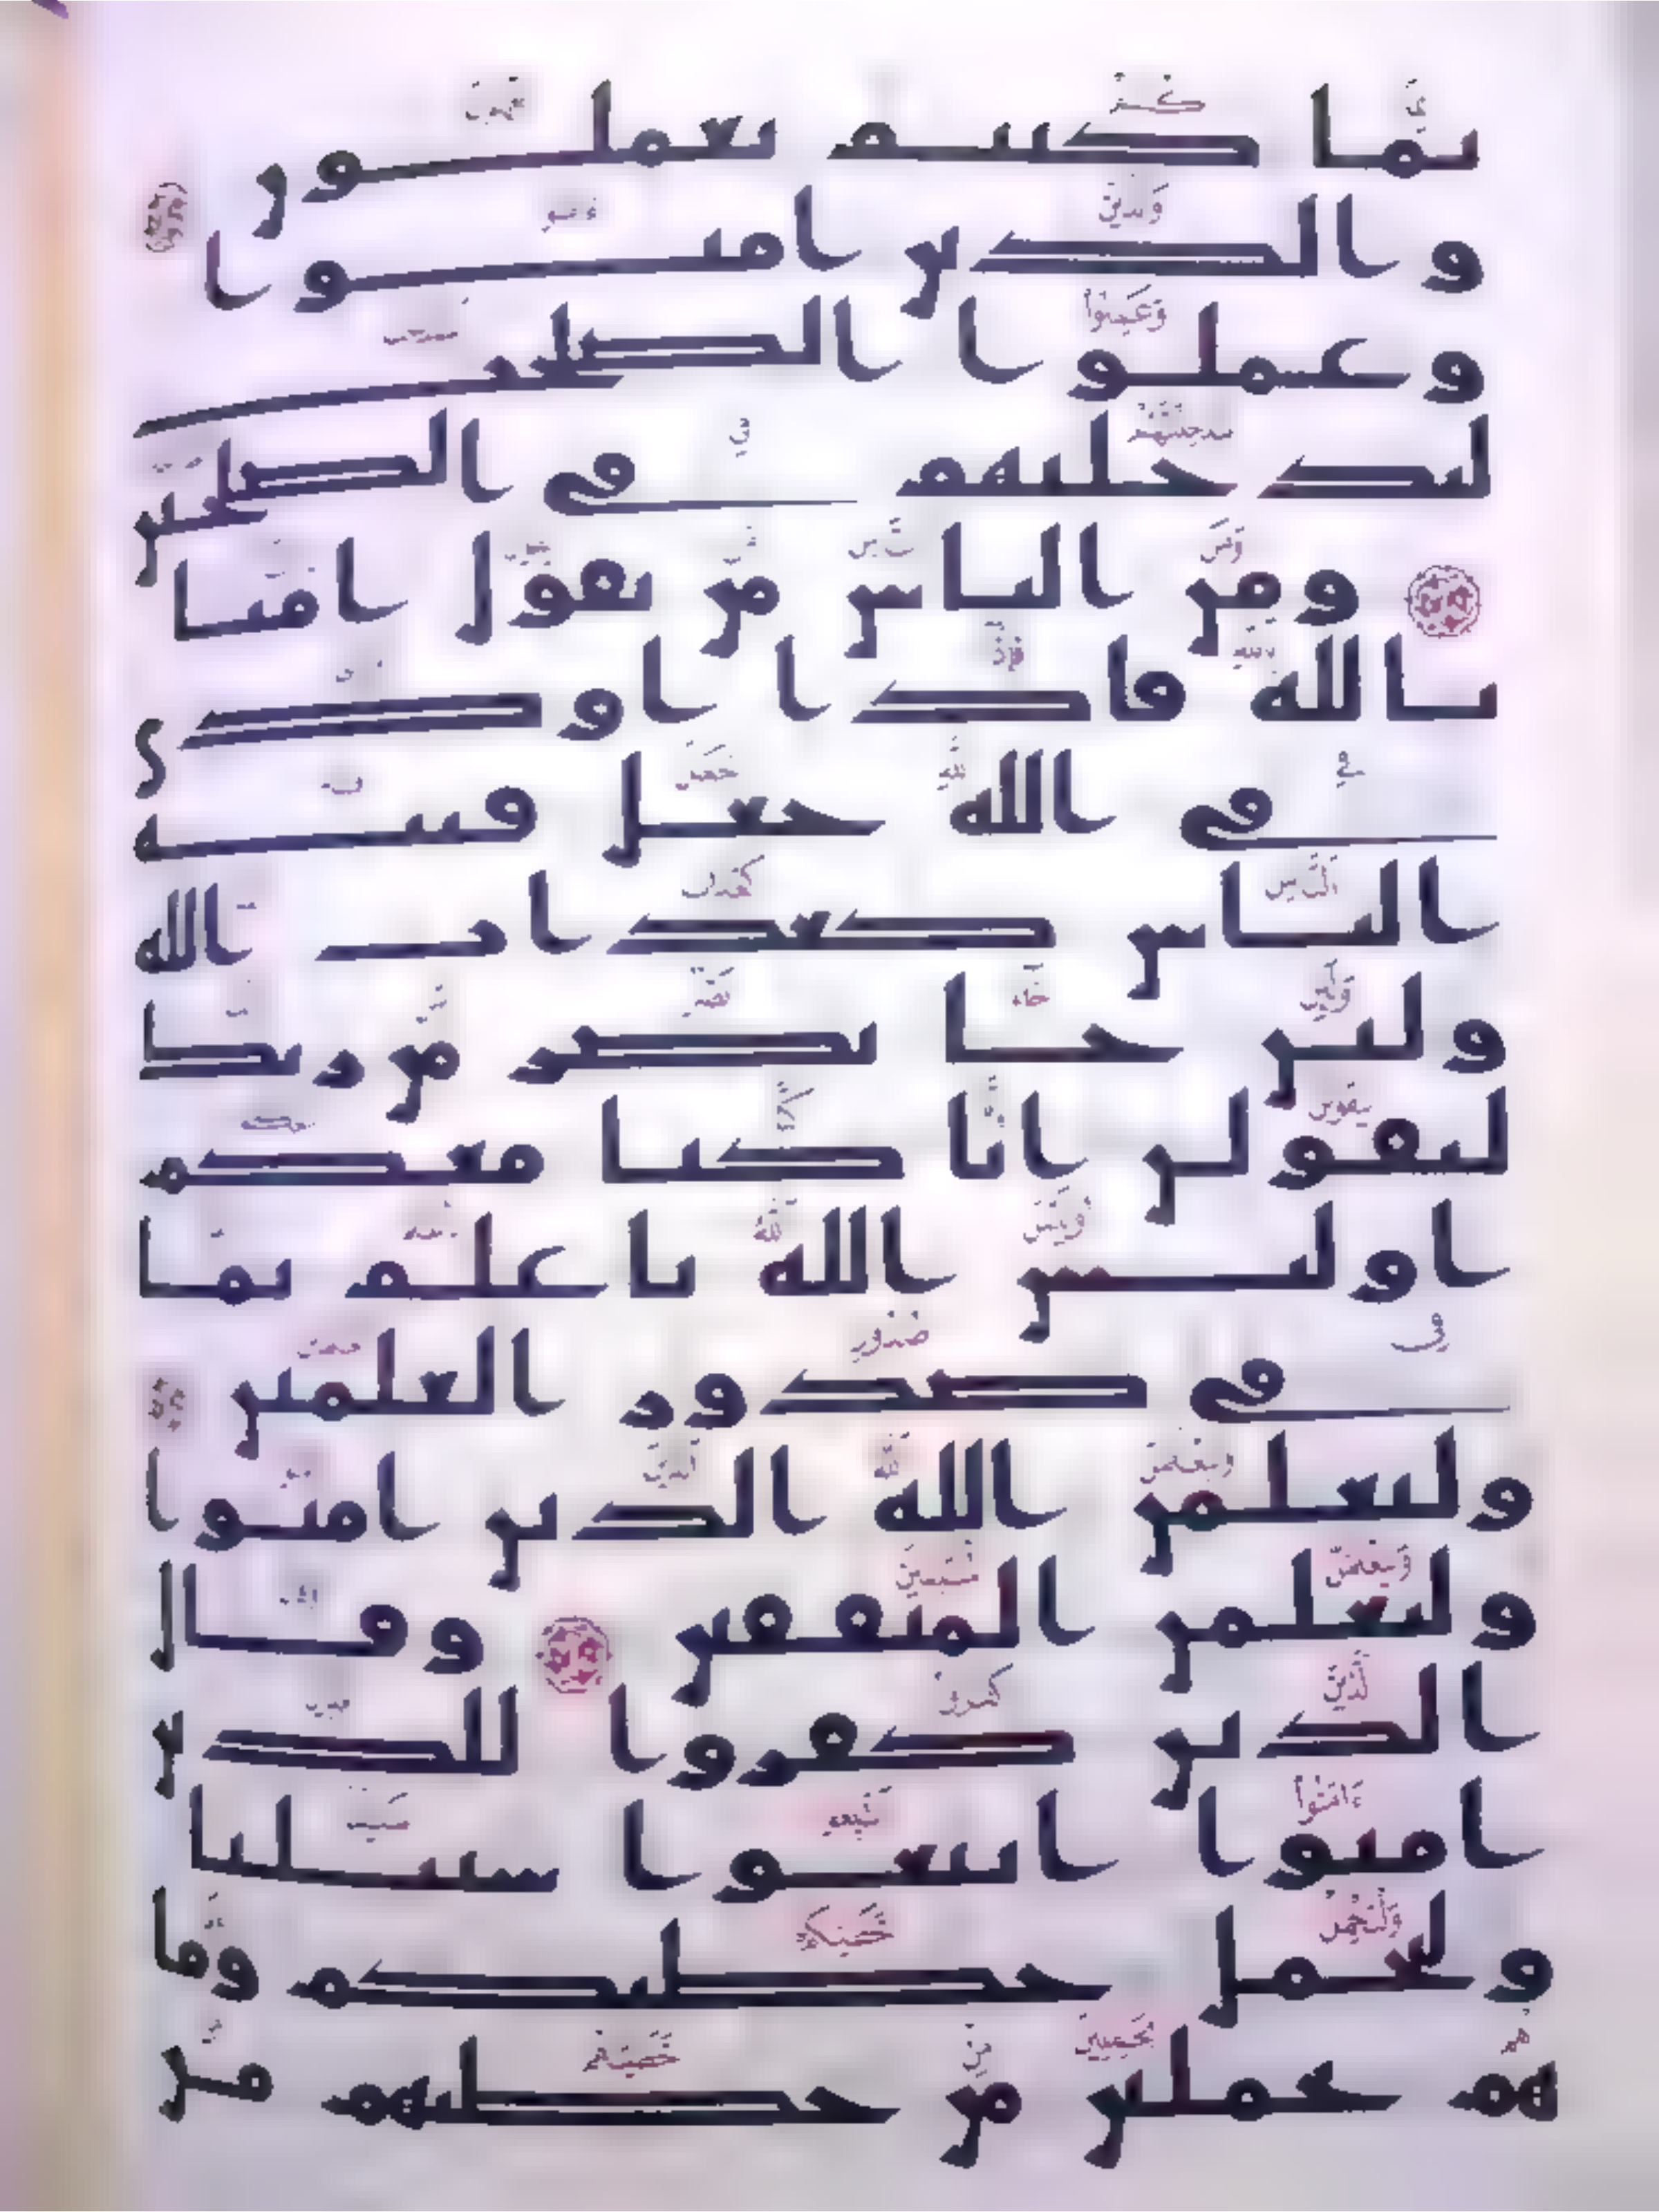 بما كنتم تعملون
والذين امنوا
وعملوا الصلحت
لندخلنهم في الصلحين
ومن الناس من يقول امنا
بالله فاذا اوذي
في الله جعل فتنه
الناس كعذاب الله
ولين جا نصر من ربك
ليقولن انا كنا معكم
اوليس الله باعلم بما
في صدور العلمين
وليعلمن الله الذين امنوا
وليعلمن المنفقين وقال
الذين كفروا للذين
امنوا اتبعوا سبيلنا
ولنحمل خطيكم وما
هم بحملين من خطيهم من